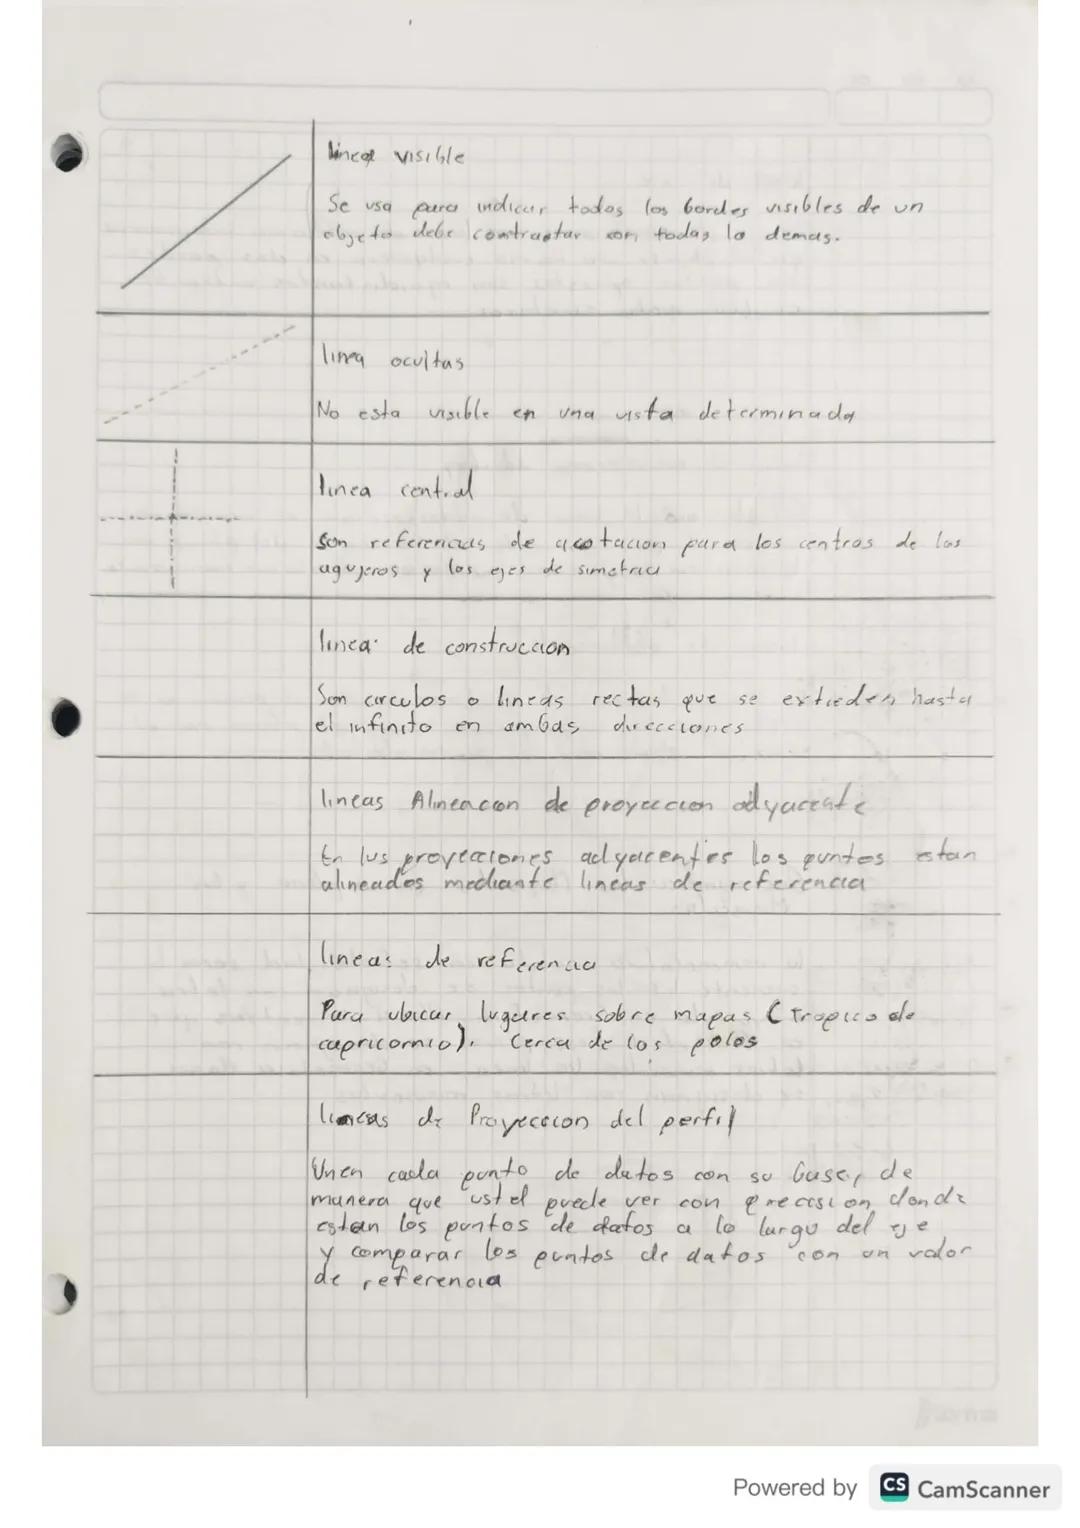 linea visible
Se usa para indicar todos los bordes visibles de un
objeto debe contrastar con todas lo demas.
linea ocultas
No esta visible en una vista determinada
linea central
Son referencias de acotacion para los centros de los
agujeros y los ejes de simetria
linea de construccion
Son circulos o lineas rectas que se extieden hasta
el infinito en ambas direcciones
lineas Alineacion de proyeccion adyacente
En las proyecciones adyacentes los puntos estan
alineados mediante lineas de referencia
lineas de referencia
Para ubicar lugares sobre mapas (Tropico de
capricornio). Cerca de los polos
lineas de Proyeccion del perfil
Unen cada punto de datos con su base, de
manera que usted puede ver con precision donde
estan los puntos de datos a lo largo del eje
y comparar los puntos de datos con un valor
de referencia
Powered by CS CamScanner